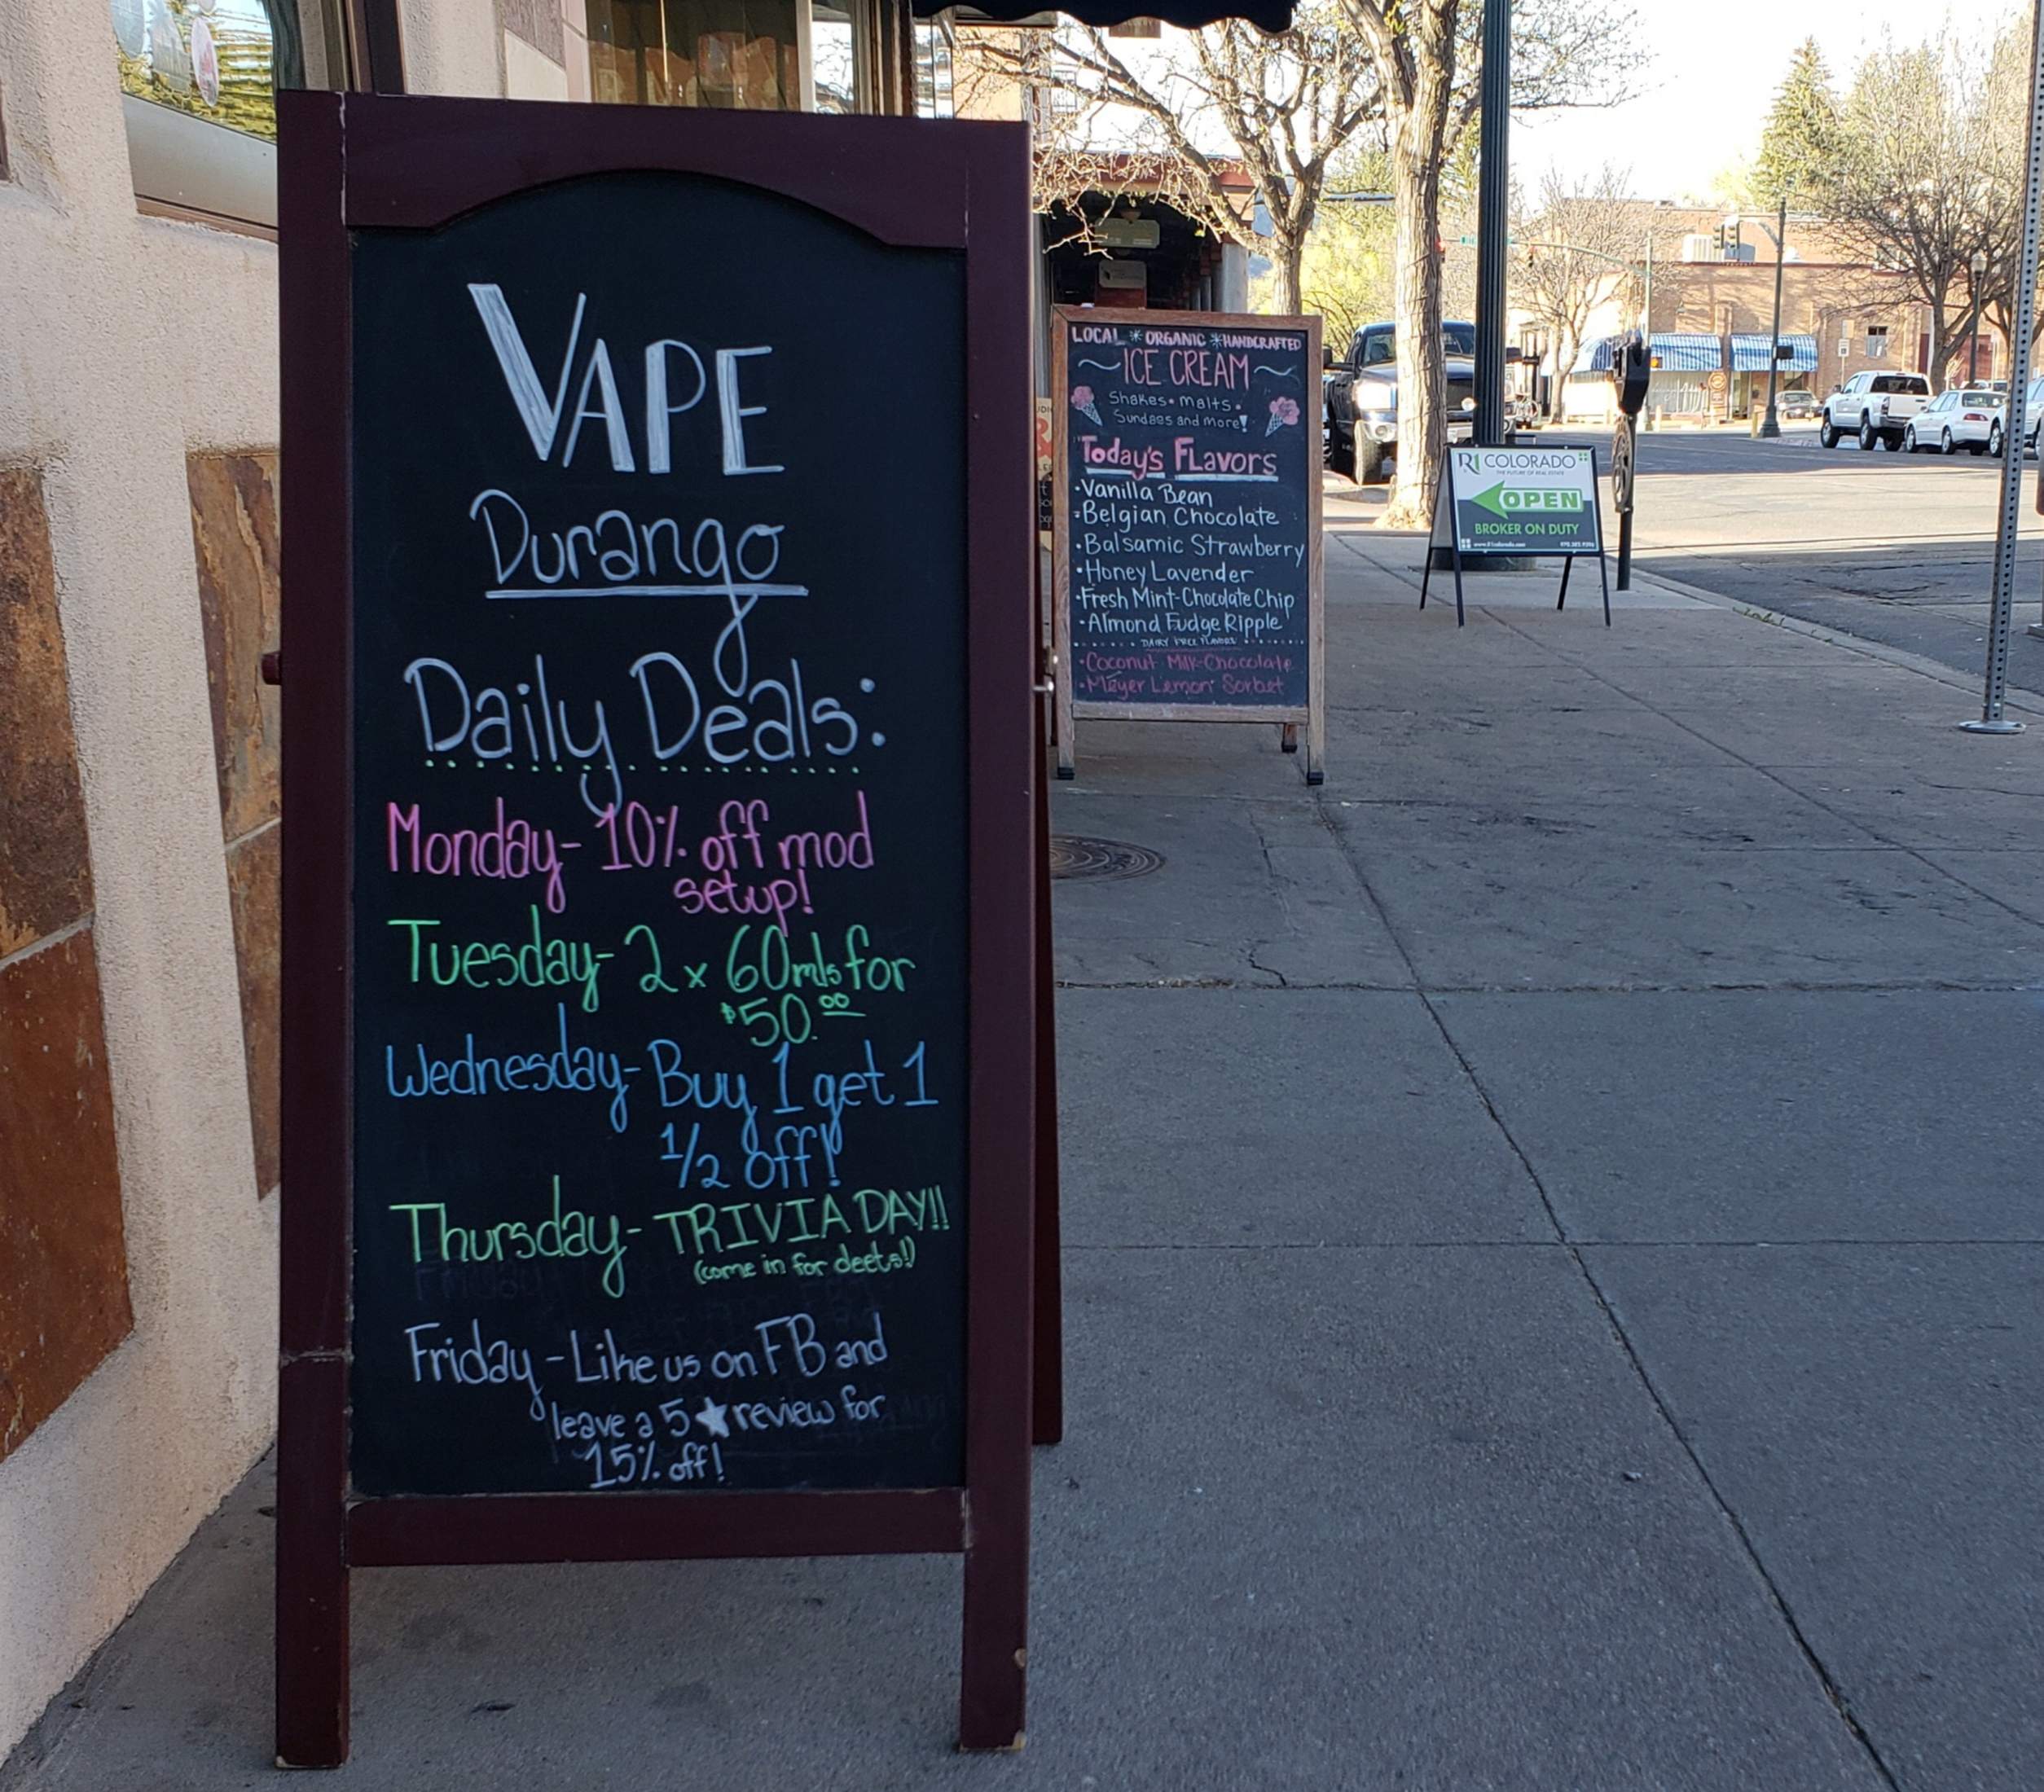 VAPE
Durango
Daily Deals:
Monday- 10% off mod
setup!
Tuesday- 2 x 60mls for
$50.00
Wednesday- Buy 1 get 1
1/2 off!
Thursday- TRIVIA DAY!!
(come in for deets!)
Friday - Like us on FB and
leave a 5 ★ review for
15% off!
LOCAL * ORGANIC * HANDCRAFTED
~ICE CREAM~
Shakes • malts •
Sundaes and more!
Today's FLavors
• Vanilla Bean
• Belgian Chocolate
• Balsamic Strawberry
• Honey Lavender
• Fresh Mint-Chocolate Chip
• Almond Fudge Ripple
DAIRY FREE FLAVORS
• Coconut Milk-Chocolate
• Meyer Lemon Sorbet
R1 COLORADO
THE FUTURE OF REAL ESTATE
OPEN
BROKER ON DUTY